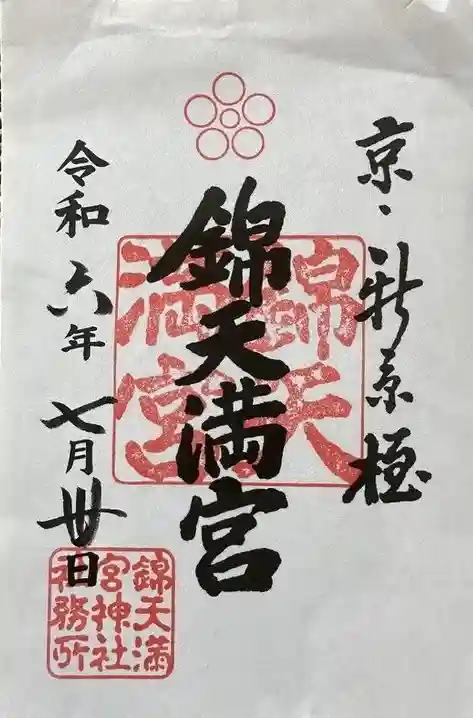 京・新京極
錦天満宮
錦天
満宮
令和六年七月丗日
錦天満
宮神社
社務所